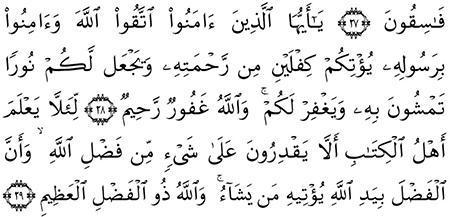 فَـٰسِقُونَ ﴿٢٧﴾ يَـٰٓأَيُّهَا ٱلَّذِينَ ءَامَنُوا۟ ٱتَّقُوا۟ ٱللَّهَ وَءَامِنُوا۟
بِرَسُولِهِۦ يُؤْتِكُمْ كِفْلَيْنِ مِن رَّحْمَتِهِۦ وَيَجْعَل لَّكُمْ نُورًا
تَمْشُونَ بِهِۦ وَيَغْفِرْ لَكُمْ ۚ وَٱللَّهُ غَفُورٌ رَّحِيمٌ ﴿٢٨﴾ لِّئَلَّا يَعْلَمَ
أَهْلُ ٱلْكِتَـٰبِ أَلَّا يَقْدِرُونَ عَلَىٰ شَىْءٍ مِّن فَضْلِ ٱللَّهِ ۙ وَأَنَّ
ٱلْفَضْلَ بِيَدِ ٱللَّهِ يُؤْتِيهِ مَن يَشَآءُ ۚ وَٱللَّهُ ذُو ٱلْفَضْلِ ٱلْعَظِيمِ ﴿٢٩﴾